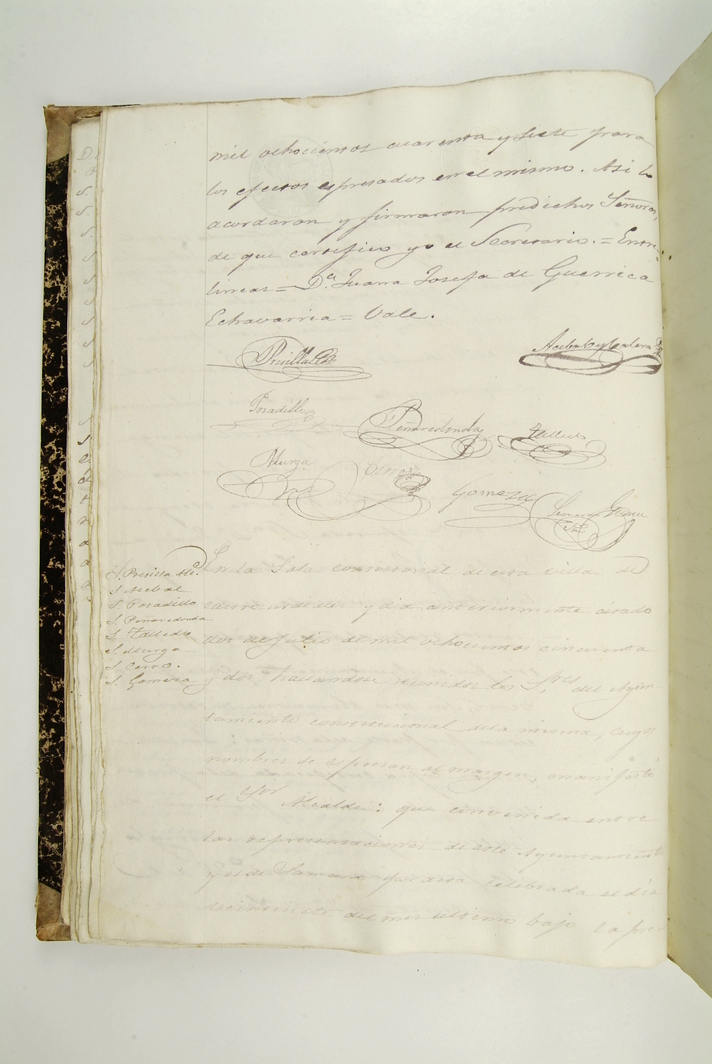 mil ochocientos cuarenta y siete para
los efectos espresados en el mismo. Asi lo
acordaron y firmaron predichos Señores,
de que certifico yo el Secretario. = Entre
lineas = D.ª Juana Josefa de Guerrica
Echavarria = Vale.
Posadillo
Peñaredonda
Talledo
Murga
Gomeza
S. Posadillo
S. Peñaredonda
S. Talledo
S. Murga
S. Cerro.
S. Gomeza
En la Sala consistorial de esta villa de
y dia anteriormente citado
dos de Julio de mil ochocientos cincuenta
y dos, hallandose reunidos los S.res del Ayun-
tamiento constitucional de la misma, cuyos
nombres se espresan al margen, manifestó
el Sor Alcalde: que convenida entre
las representaciones de este Ayuntamiento
y el de Samano celebrada el dia
del mes ultimo bajo la pre